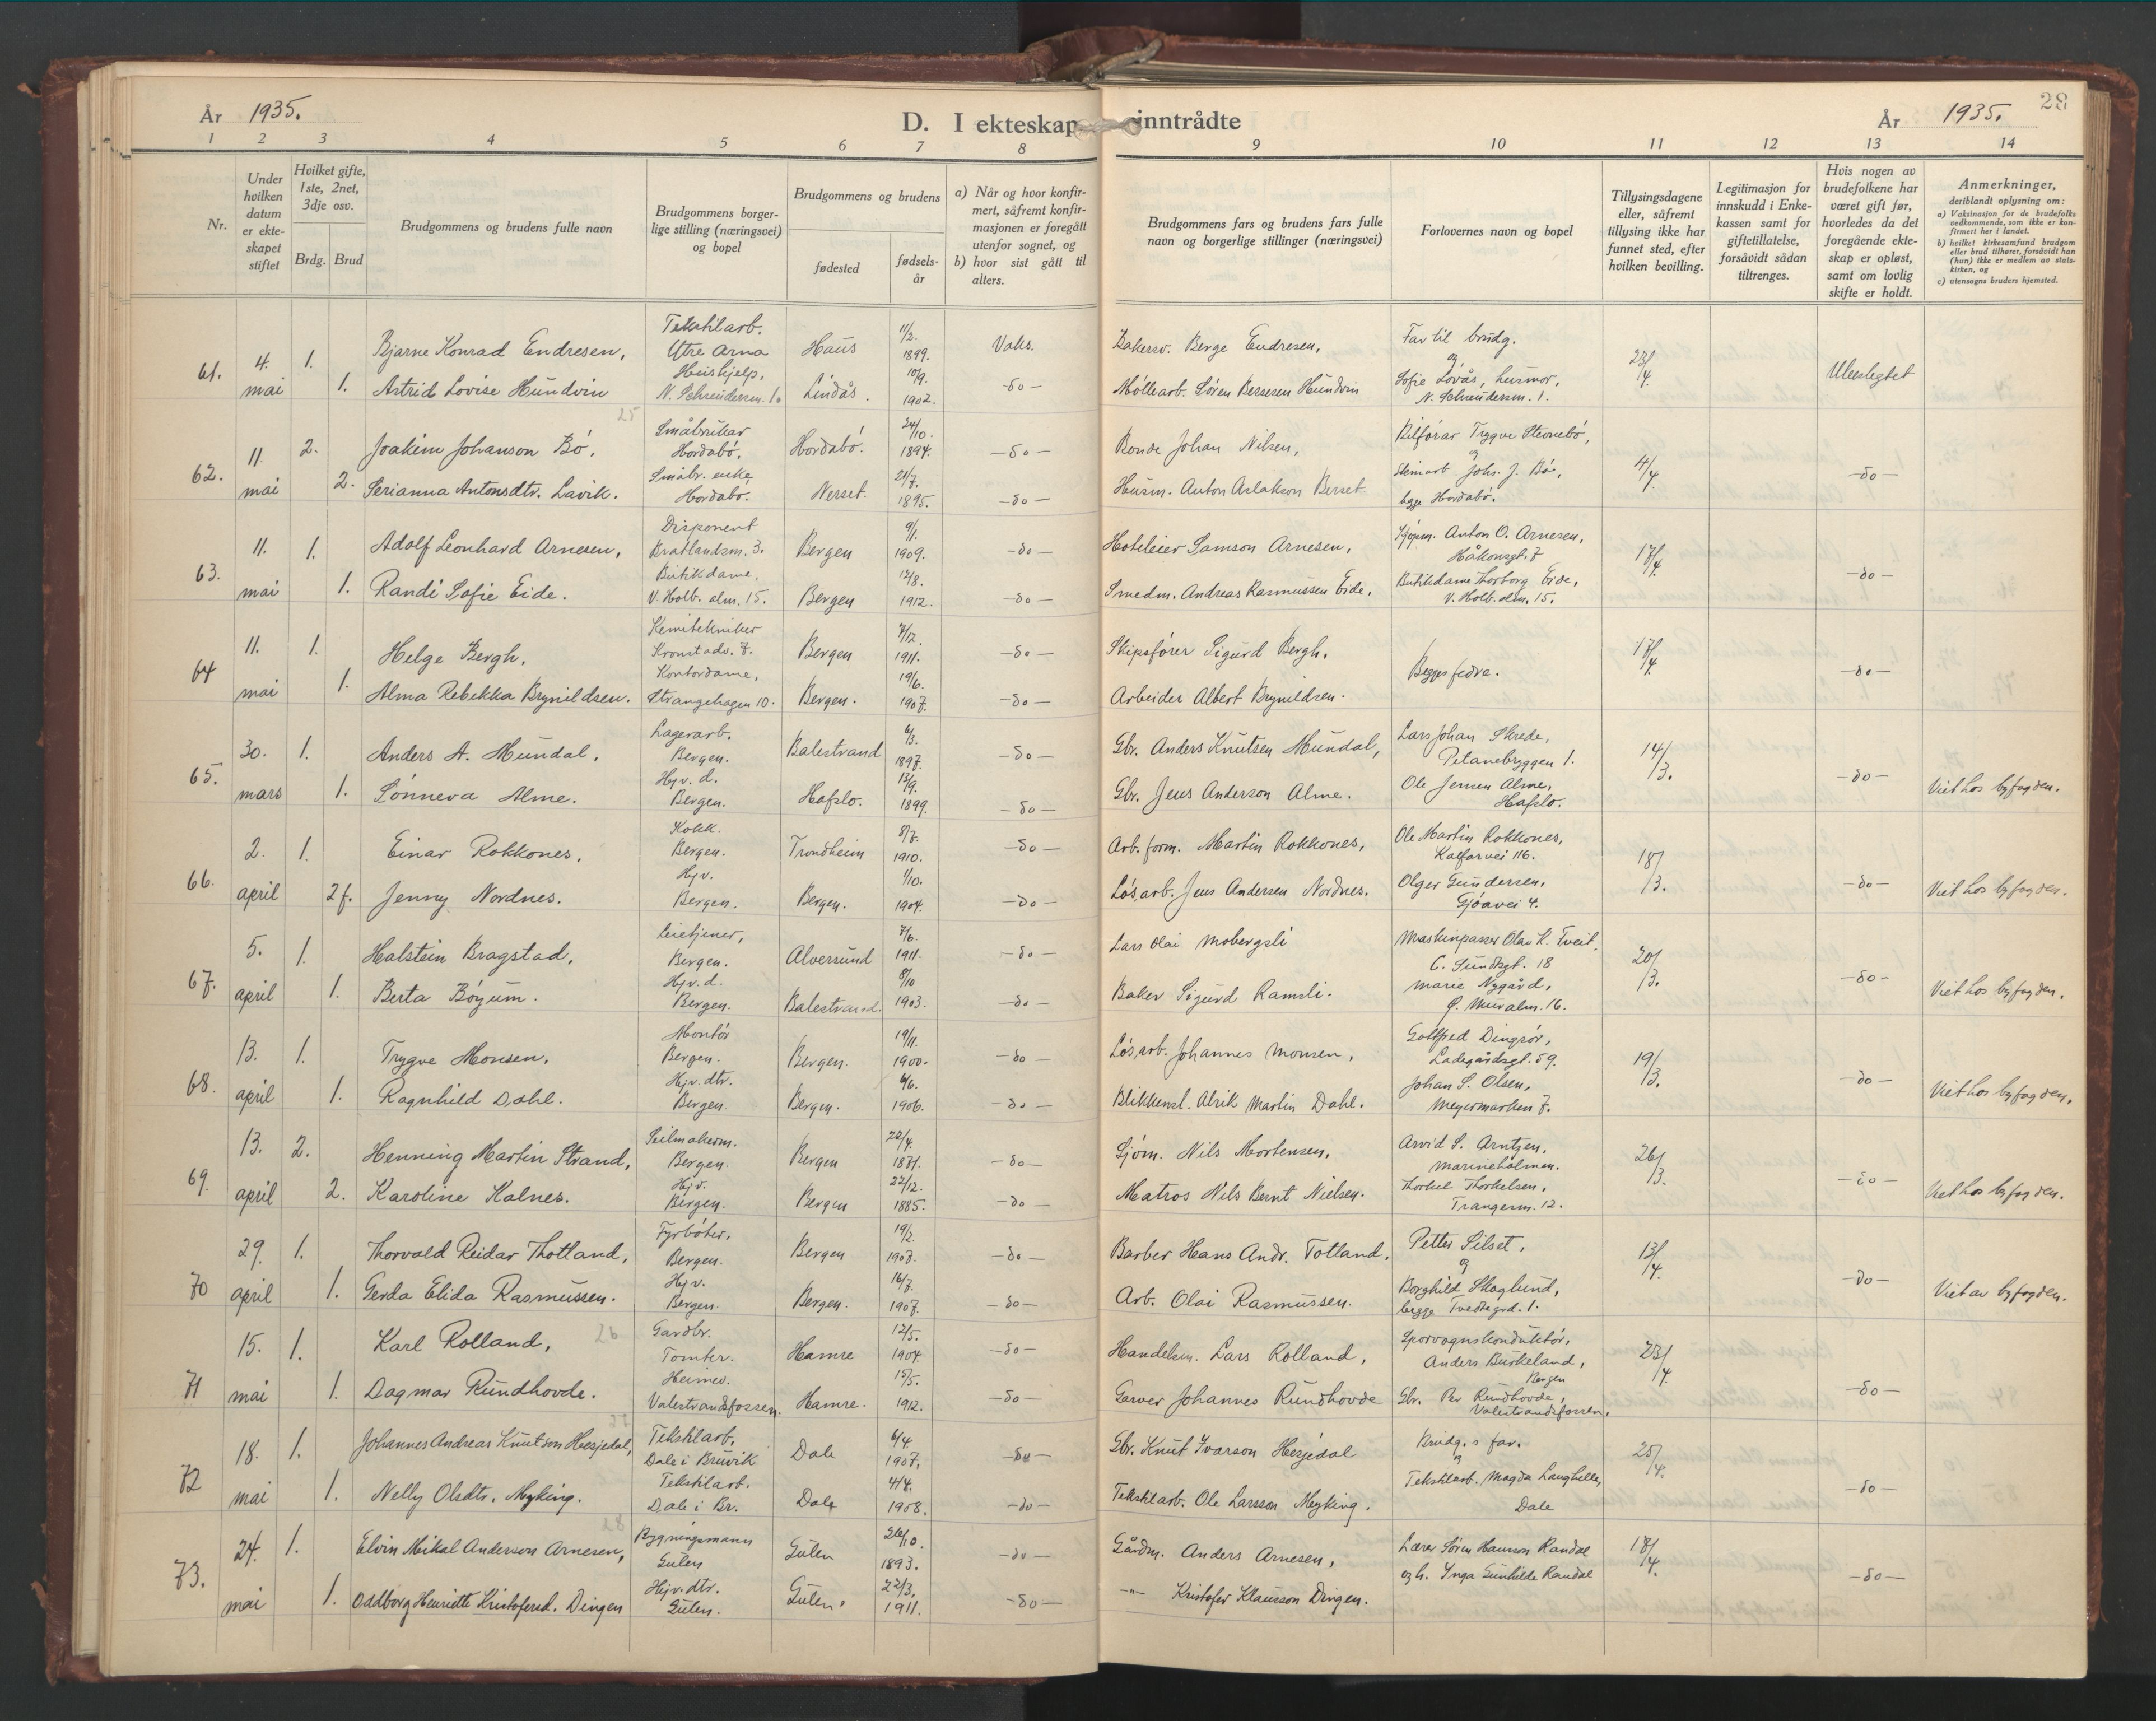 År 1935.
D. I ekteskap inntrådte
År 1935.
28
1 2 3 4 5 6 7 8 9 10 11 12 13 14
Nr.
Under hvilken datum er ekteskapet stiftet
Hvilket gifte, 1ste, 2net, 3dje osv.
Brdg. Brud
Brudgommens og brudens fulle navn
Brudgommens borgerlige stilling (næringsvei) og bopel
Brudgommens og brudens
fødested
fødselsår
a) Når og hvor konfirmert, såfremt konfirmasjonen er foregått utenfor sognet, og
b) hvor sist gått til alters.
Brudgommens fars og brudens fars fulle navn og borgerlige stillinger (næringsvei)
Forlovernes navn og bopel
Tillysingsdagene eller, såfremt tillysing ikke har funnet sted, efter hvilken bevilling.
Legitimasjon for innskudd i Enkekassen samt for giftetillatelse, forsåvidt sådan tiltrenges.
Hvis nogen av brudefolkene har været gift før, hvorledes da det foregående ekteskap er opløst, samt om lovlig skifte er holdt.
Anmerkninger, deriblandt oplysning om:
a) Vaksinasjon for de brudefolks vedkommende, som ikke er konfirmert her i landet.
b) hvilket kirkesamfund brudgom eller brud tilhører, forsåvidt han (hun) ikke er medlem av statskirken, og
c) utensogns bruders hjemsted.
61. 4. mai 1. Bjarne Konrad Endresen, Tekstilarb. Ytre Arna Haus 11/2. 1899. Vaks. Bakersv. Berge Endresen, Far til brudg. og 23/4. Ubeslegtet
1. Astrid Lovise Hundvin Heishjelp, N. Schreudersm. 1. Lindås. 10/9. 1902. -do- Møllearb. Søren Bersesen Hundvin Sofie Lovås, husmor, N. Schreudersm. 1.
25
62. 11 mai 2. Joakim Johanson Bö, Småbruker Hordabö, Hordabö. 24/10. 1894. -do- Bonde Johan Nilsen, Bilförar Trygve Stevnebö, og 4/4 -do-
2. Serianna Antonsdtr. Lavik. Småbr. enke Hordabö. Nerset. 21/7. 1895. -do- Husm. Anton Aslakson Berset Steinarb. Johs. J. Bö, begge Hordabö.
63. 11. mai 1. Adolf Leonhard Arnesen, Disponent Bratlandsm. 3. Bergen 9/1. 1909. -do- Hoteleier Samson Arnesen, Kjøpm. Anton O. Arnesen, Håkonsgt. 7 17/4. -do-
1. Randi Sofie Eide. Butikdame, V. Holb. alm. 15. Bergen 12/8. 1912. -do- Smedm. Andreas Rasmussen Eide, Butikdame Thorborg Eide, V. Holb. alm. 15.
64 11. mai 1. Helge Bergh, Kemitekniker Kronstadv. 7. Bergen 7/12. 1911. -do- Skipsfører Sigurd Bergh, Begges fedre. 17/4. -do-
1. Alma Rebekka Brynildsen. Kontordame, Strangehagen 10. Bergen. 19/6. 1907. -do- Arbeider Albert Brynildsen.
65. 30. mars 1. Anders A. Mundal, Lagerarb. Bergen. Balestrand 6/3. 1897. -do- Gbr. Anders Knutsen Mundal, Lars Johan Skrede, 14/3. -do- Viet hos byfogden.
1. Sönneva Alme. Hjv. d. Bergen. Hafslo. 13/9. 1899. -do- Gbr. Jens Anderson Alme. Ole Jensen Alme, Hafslo.
66. 2. april 1. Einar Rokkones, Kokk. Bergen. Trondheim 8/7. 1910. -do- Arb. form. Martin Rokkones, Ole Martin Rokkones, Kalfarvei 116. 18/3. -do- Viet hos byfogden.
2 f. Jenny Nordnes. Hjv. Bergen. Bergen. 1/10. 1904. -do- Løsarb. Jens Andersen Nordnes. Olger Gundersen, Gjøavei 4.
67. 5. april 1. Halstein Bragstad, Leietjener, Bergen. Alversund 7/6. 1911. -do- Lars Olai Mobergsli Maskinpasser Olav K. Tveit, C. Sundtsgt. 18 20/3. -do- Viet hos byfogden.
1. Berta Böyum. Hjv. d. Bergen. Balestrand. 8/10 1903. -do- Baker Sigurd Ramsli. Marie Nygård, Ø. Muralm. 16.
68. 13. april 1. Trygve Monsen, Montör Bergen. Bergen. 19/11. 1900. -do- Løsarb. Johannes Monsen, Gottfred Dingsör, Ladegårdsgt. 59. 19/3. -do- Viet hos byfogden.
1. Ragnhild Dahl. Hjv. dtr. Bergen. Bergen. 6/6. 1906. -do- Blikkensl. Alrik Martin Dahl. Johan S. Olsen, Meyermarken 7.
69. 13. april 2. Henning Martin Strand, Seilmakerm. Bergen. Bergen 22/4. 1871. -do- Sjöm. Nils Mortensen, Arvid S. Arntzen, Marineholmen. 26/3. -do- Viet hos byfogden.
2. Karoline Kalnes. Hjv. Bergen. Bergen 22/12. 1885. -do- Matros Nils Bernt Nielsen. Thorkel Thorkelsen, Trangesm. 12.
70 29. april 1. Thorvald Reidar Thotland, Fyrböter, Bergen. Bergen 19/2. 1907. -do- Barber Hans Andr. Totland. Petter Silset, og 13/4. -do- Viet av byfogden.
1. Gerda Elida Rasmussen. Hjv. Bergen. Bergen. 16/7. 1907. -do- Arb. Olai Rasmussen. Borghild Skoglund, begge Tvedtegrd. 1.
71 15. mai 1. Karl Rolland, 26 Gardbr. Tomter. Hamre 12/5. 1904. -do- Handelsm. Lars Rolland, Sporvognskonduktör, Anders Burkeland, Bergen 23/4. -do-
1. Dagmar Rundhovde. Heimev. Valestrandsfossen. Hamre. 15/5. 1912. -do- Garver Johannes Rundhovde Gbr. Per Rundhovde, Valestrandsfossen.
27
72 18. mai 1. Johannes Andreas Knutson Hesjedal, Tekstilarb. Dale i Bruvik Dale 6/4. 1907. -do- Gbr. Knut Ivarson Hesjedal Brudg.s far. og 25/4. -do-
1. Nelly Olsdtr. Myking. Tekstilarb. Dale i Br. Dale 4/4. 1908. -do- Tekstilarb. Ole Larsson Myking. Tekstilarb. Magda Langhelle, Dale
28
73. 24. mai 1. Elvin Mikal Anderson Arnesen, Bygningsmann Gulen Gulen 26/10. 1893. -do- Gårdm. Anders Arnesen, Lærer Sören Hansson Randal 18/4. -do-
1. Oddborg Henriette Kristofersd. Dingen Hjv. dtr. Gulen. Gulen. 22/3. 1911. -do- -"- Kristofer Klausson Dingen. og h. Inga Gunhilde Randal